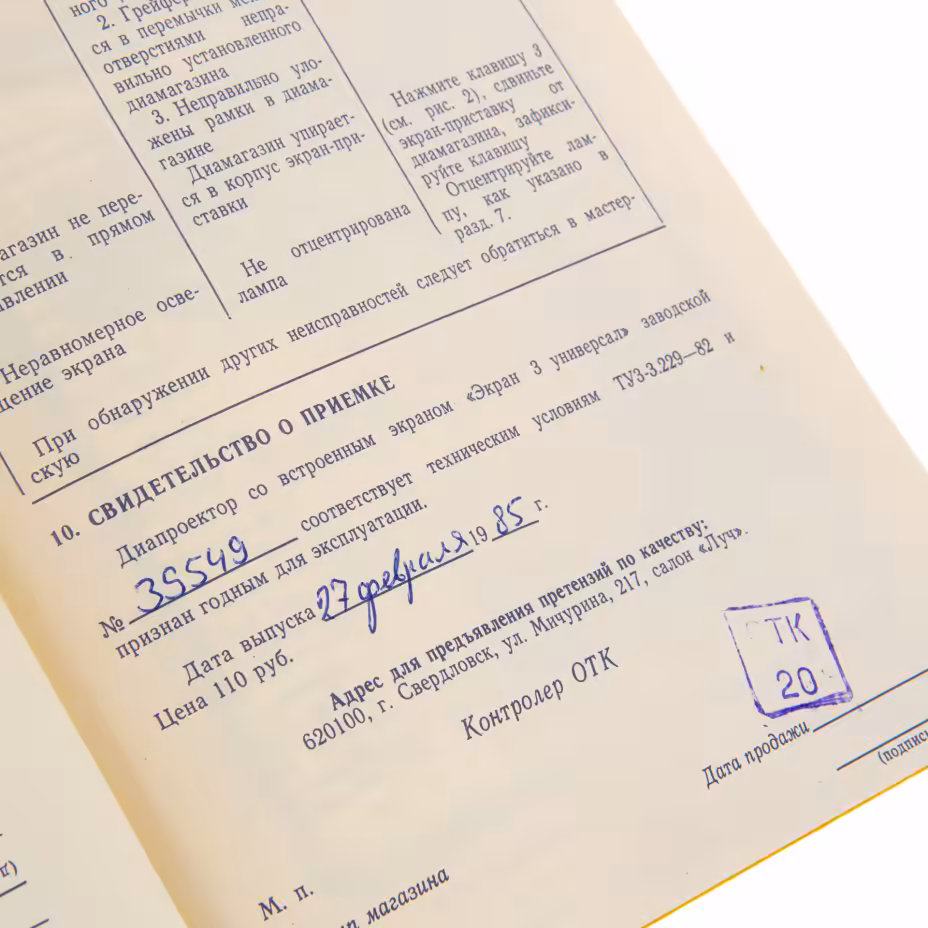 2. Грейфер
ся в перемычки
отверстиями непра-
вильно установленного
диамагазина
3. Неправильно уло-
жены рамки в диама-
газине
Диамагазин упирает-
ся в корпус экран-при-
ставки
Не отцентрирована
лампа
Нажмите клавишу 3
(см. рис. 2), сдвиньте
экран-приставку от
диамагазина, зафикси-
руйте клавишу
Отцентрируйте лам-
пу, как указано в
разд. 7.
не пере-
в прямом
Неравномерное осве-
щение экрана
При обнаружении других неисправностей следует обратиться в мастер-
скую
10. СВИДЕТЕЛЬСТВО О ПРИЕМКЕ
Диапроектор со встроенным экраном «Экран 3 универсал» заводской
№ 39549 соответствует техническим условиям ТУ3-3.229—82 и
признан годным для эксплуатации.
Дата выпуска 27 февраля 1985 г.
Цена 110 руб.
Адрес для предъявления претензий по качеству:
620100, г. Свердловск, ул. Мичурина, 217, салон «Луч».
Контролер ОТК
ТК
20
Дата продажи
(подпись
М. п.
магазина